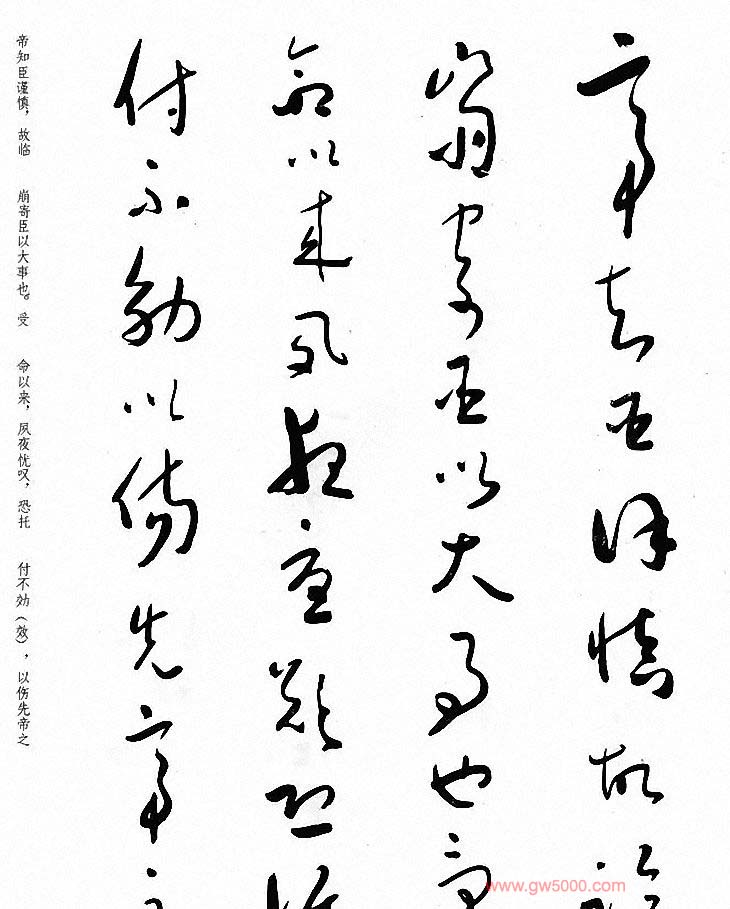 帝知臣謹慎故臨
崩寄臣以大事也受
命以来夙夜憂歎恐託
付不効以傷先帝之
帝知臣谨慎，故临　崩寄臣以大事也。受　命以来，夙夜忧叹，恐托　付不効（效），以伤先帝之
www.gw5000.com